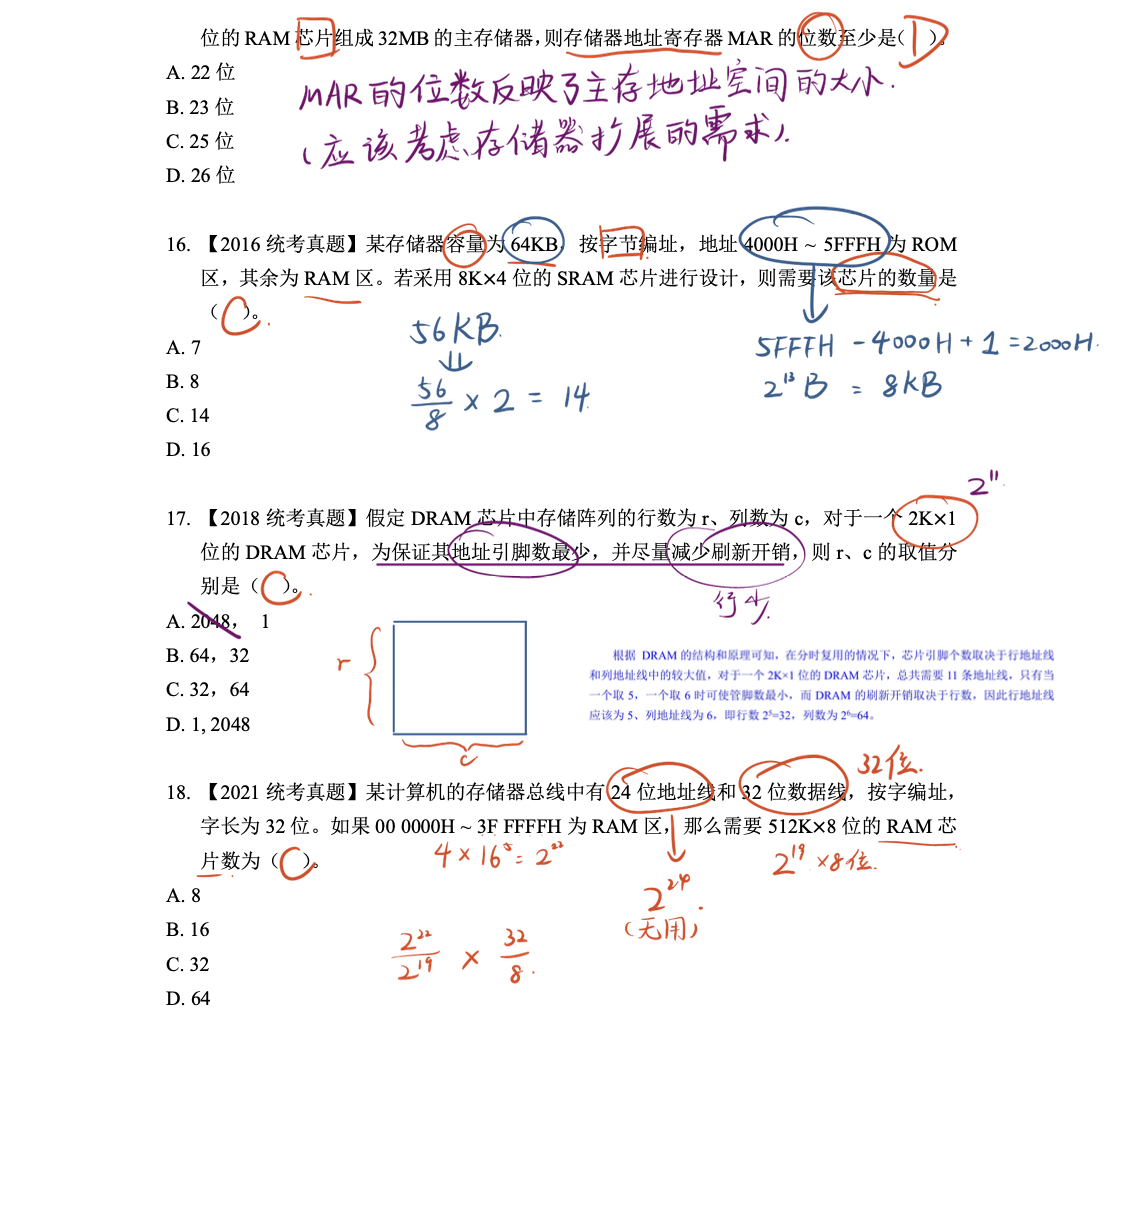 位的 RAM 芯片组成 32MB 的主存储器，则存储器地址寄存器 MAR 的位数至少是( D )。
A. 22 位
B. 23 位
C. 25 位
D. 26 位
MAR的位数反映了主存地址空间的大小.
(应该考虑存储器扩展的需求).
16. 【2016 统考真题】某存储器容量为 64KB，按字节编址，地址 4000H ~ 5FFFH 为 ROM
区，其余为 RAM 区。若采用 8K×4 位的 SRAM 芯片进行设计，则需要该芯片的数量是
（ C ）。
A. 7
B. 8
C. 14
D. 16
56KB.
⇓
56/8 × 2 = 14.
5FFFH - 4000H + 1 = 2000H.
2¹³B = 8KB
2¹¹
17. 【2018 统考真题】假定 DRAM 芯片中存储阵列的行数为 r、列数为 c，对于一个 2K×1
位的 DRAM 芯片，为保证其地址引脚数最少，并尽量减少刷新开销，则 r、c 的取值分
别是（ C ）。
行少
A. 2048， 1
B. 64，32
C. 32，64
D. 1, 2048
r
c
根据 DRAM 的结构和原理可知，在分时复用的情况下，芯片引脚个数取决于行地址线
和列地址线中的较大值，对于一个 2K×1 位的 DRAM 芯片，总共需要 11 条地址线，只有当
一个取 5，一个取 6 时可使管脚数最小，而 DRAM 的刷新开销取决于行数，因此行地址线
应该为 5、列地址线为 6，即行数 2⁵=32，列数为 2⁶=64。
32位.
18. 【2021 统考真题】某计算机的存储器总线中有 24 位地址线和 32 位数据线，按字编址，
字长为 32 位。如果 00 0000H ~ 3F FFFFH 为 RAM 区，那么需要 512K×8 位的 RAM 芯
片数为（ C ）。
4 × 16⁵ = 2²²
2¹⁹ × 8位.
2²⁴.
(无用)
A. 8
B. 16
C. 32
D. 64
2²²/2¹⁹ × 32/8.